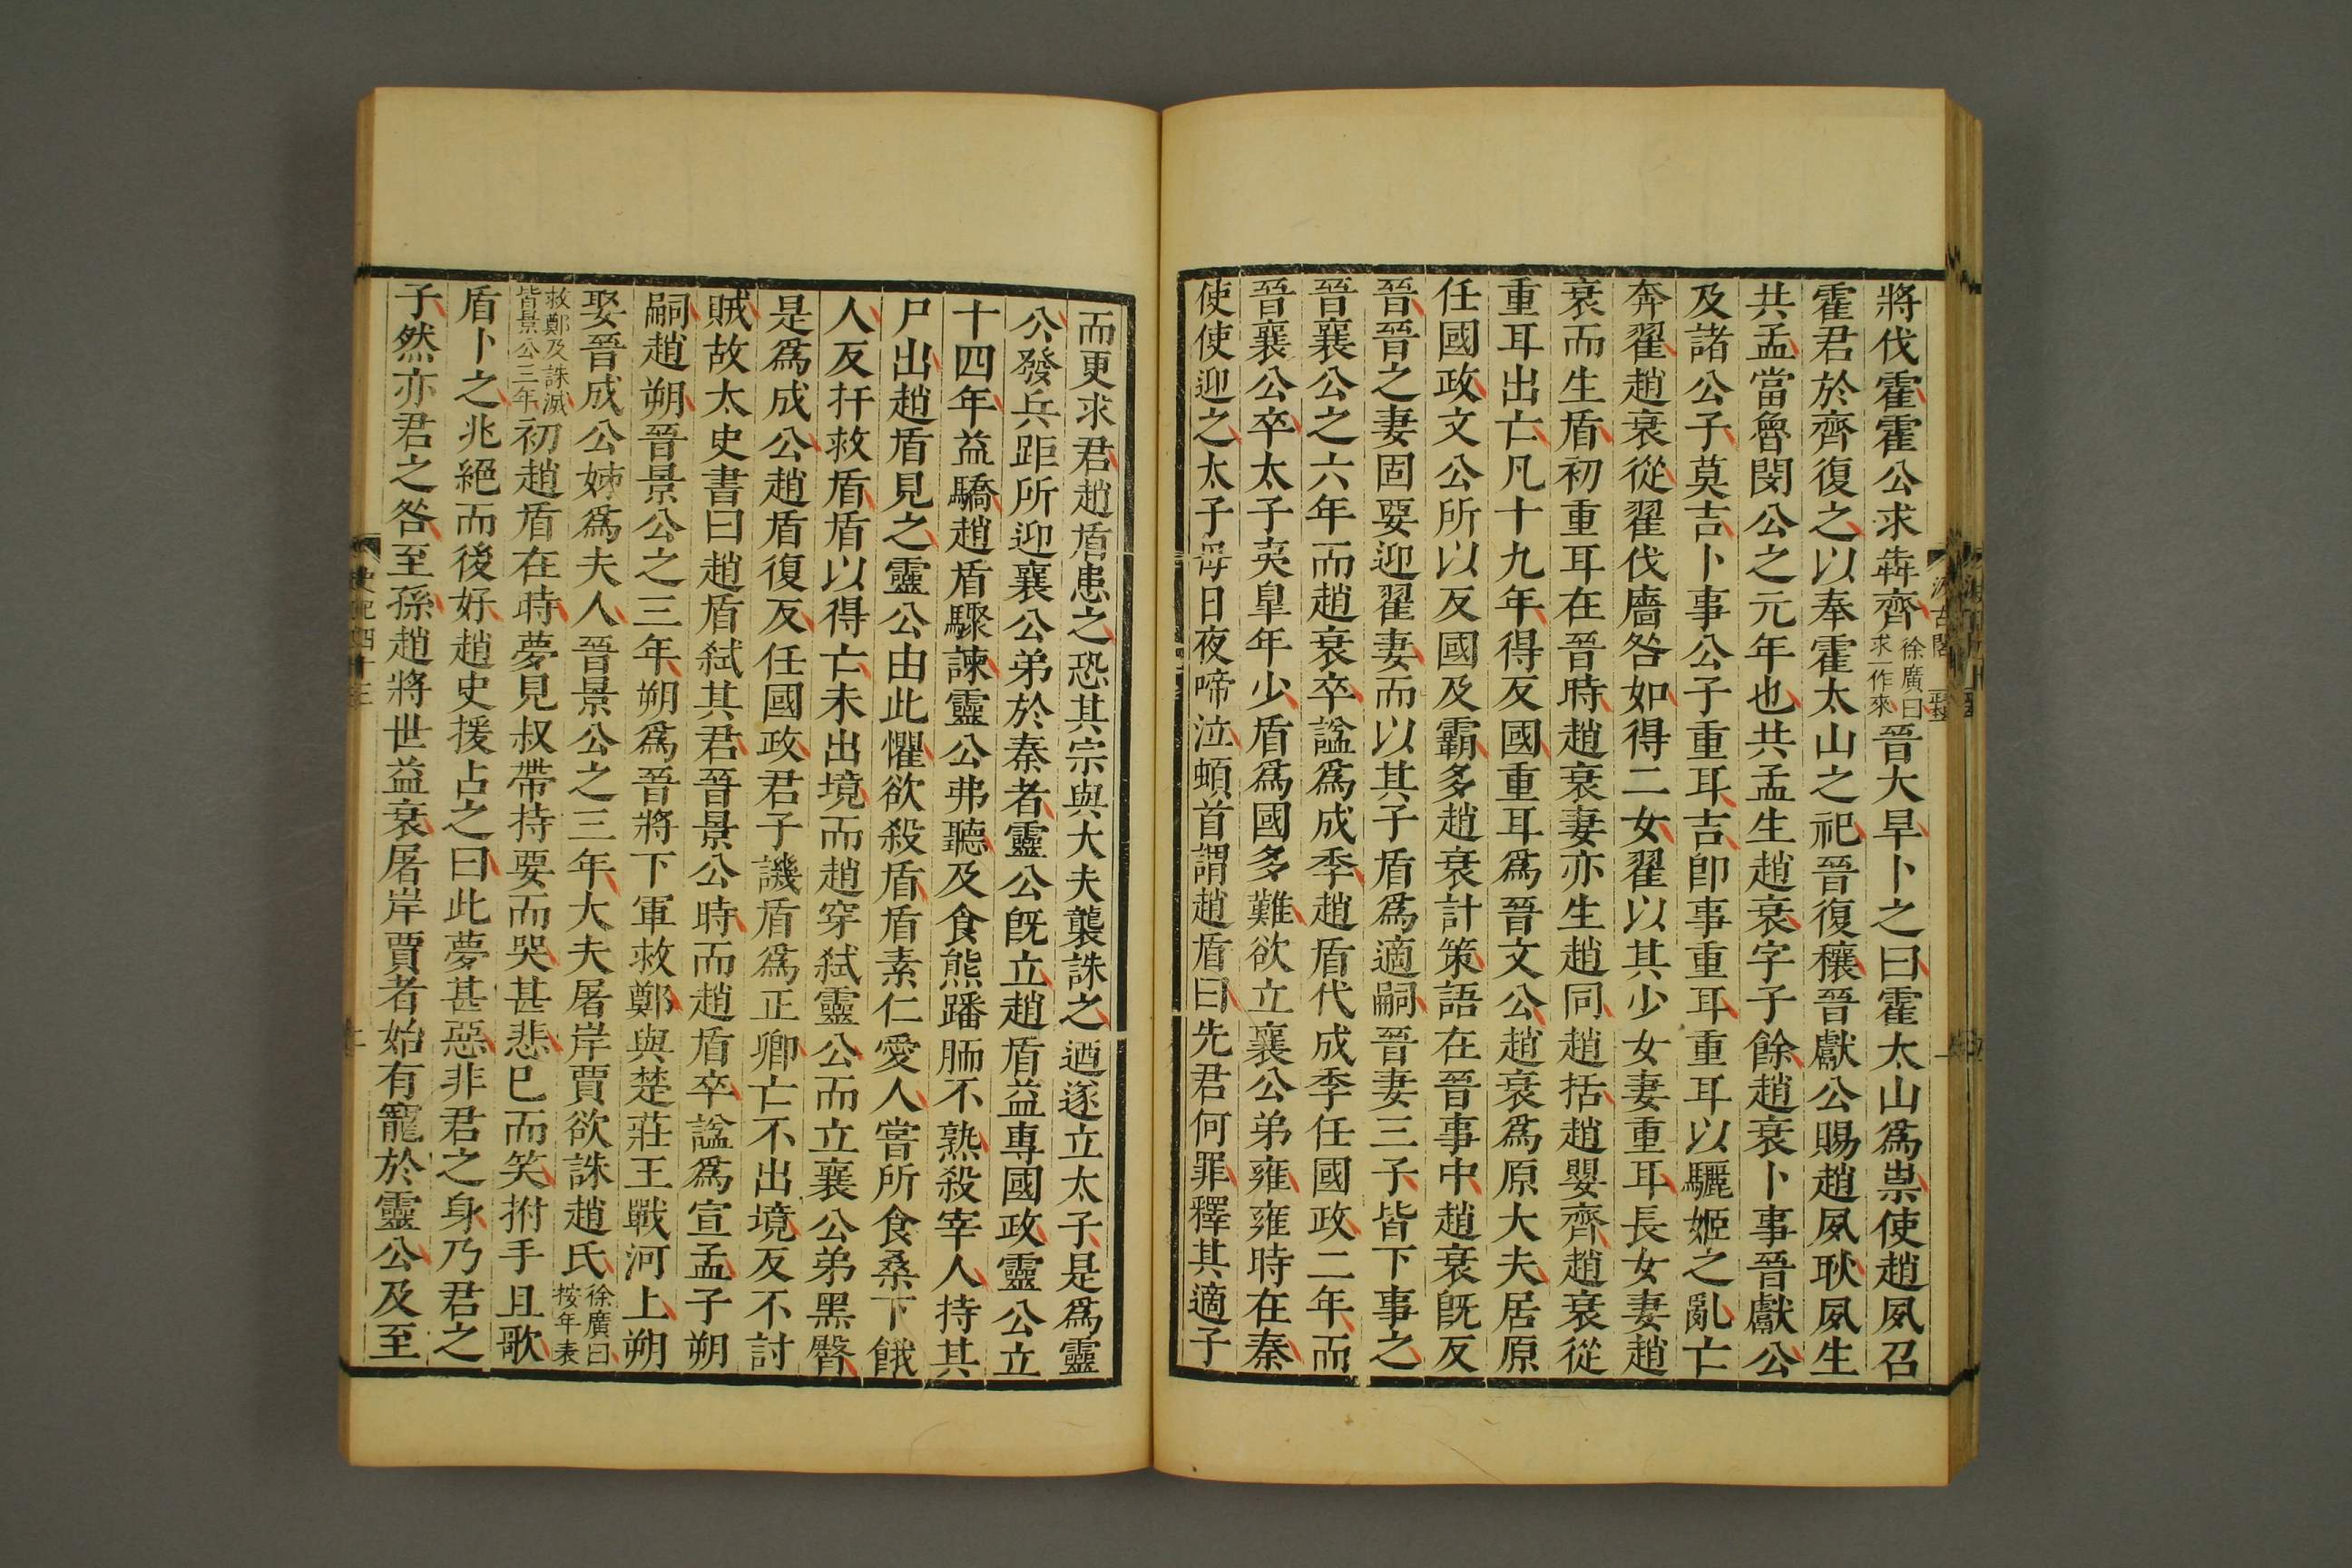 將伐霍霍公求犇齊徐廣曰求一作來晉大旱卜之曰霍太山爲祟使趙夙召
霍君於齊復之以奉霍太山之祀晉復穰晉獻公賜趙夙耿夙生
共孟當魯閔公之元年也共孟生趙衰字子餘趙衰卜事晉獻公
及諸公子莫吉卜事公子重耳吉卽事重耳重耳以驪姬之亂亡
奔翟趙衰從翟伐廧咎如得二女翟以其少女妻重耳長女妻趙
衰而生盾初重耳在晉時趙衰妻亦生趙同趙括趙嬰齊趙衰從
重耳出亡凡十九年得反國重耳爲晉文公趙衰爲原大夫居原
任國政文公所以反國及霸多趙衰計策語在晉事中趙衰旣反
晉晉之妻固要迎翟妻而以其子盾爲適嗣晉妻三子皆下事之
晉襄公之六年而趙衰卒諡爲成季趙盾代成季任國政二年而
晉襄公卒太子夷皐年少盾爲國多難欲立襄公弟雍雍時在秦
使使迎之太子母日夜啼泣頓首謂趙盾曰先君何罪釋其適子
而更求君趙盾患之恐其宗與大夫襲誅之迺遂立太子是爲靈
公發兵距所迎襄公弟於秦者靈公旣立趙盾益專國政靈公立
十四年益驕趙盾驟諫靈公弗聽及食熊蹯胹不熟殺宰人持其
尸出趙盾見之靈公由此懼欲殺盾盾素仁愛人嘗所食桑下餓
人反扞救盾盾以得亡未出境而趙穿弒靈公而立襄公弟黑臀
是爲成公趙盾復反任國政君子譏盾爲正卿亡不出境反不討
賊故太史書曰趙盾弒其君晉景公時而趙盾卒諡爲宣孟子朔
嗣趙朔晉景公之三年朔爲晉將下軍救鄭與楚莊王戰河上朔
娶晉成公姊爲夫人晉景公之三年大夫屠岸賈欲誅趙氏徐廣曰按年表
救鄭及誅滅皆景公三年初趙盾在時夢見叔帶持要而哭甚悲已而笑拊手且歌
盾卜之兆絕而後好趙史援占之曰此夢甚惡非君之身乃君之
子然亦君之咎至孫趙將世益衰屠岸賈者始有寵於靈公及至
史記四十三